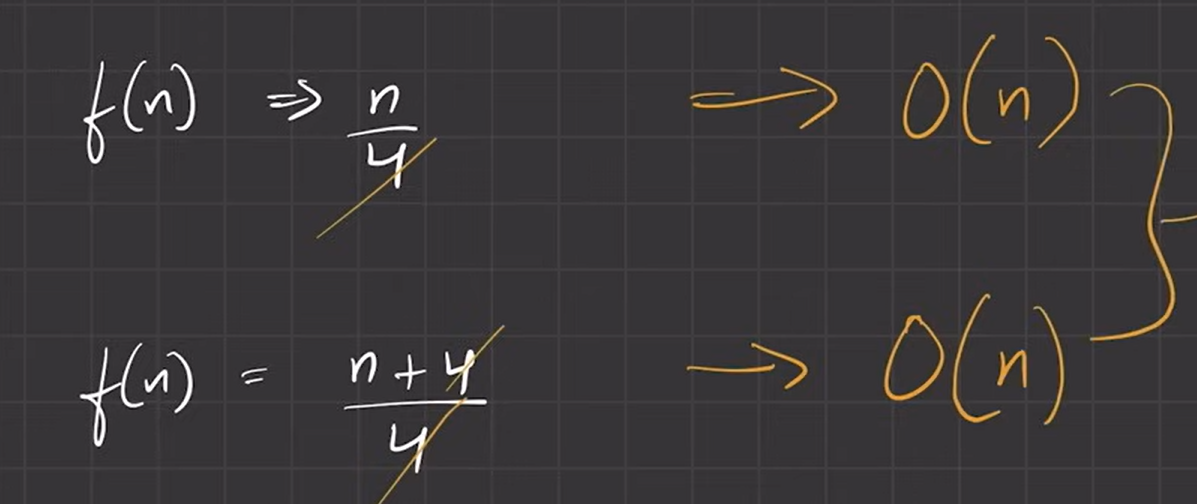 f(n) ⇒ n/4 ⇒ O(n)
f(n) = (n+4)/4 → O(n)